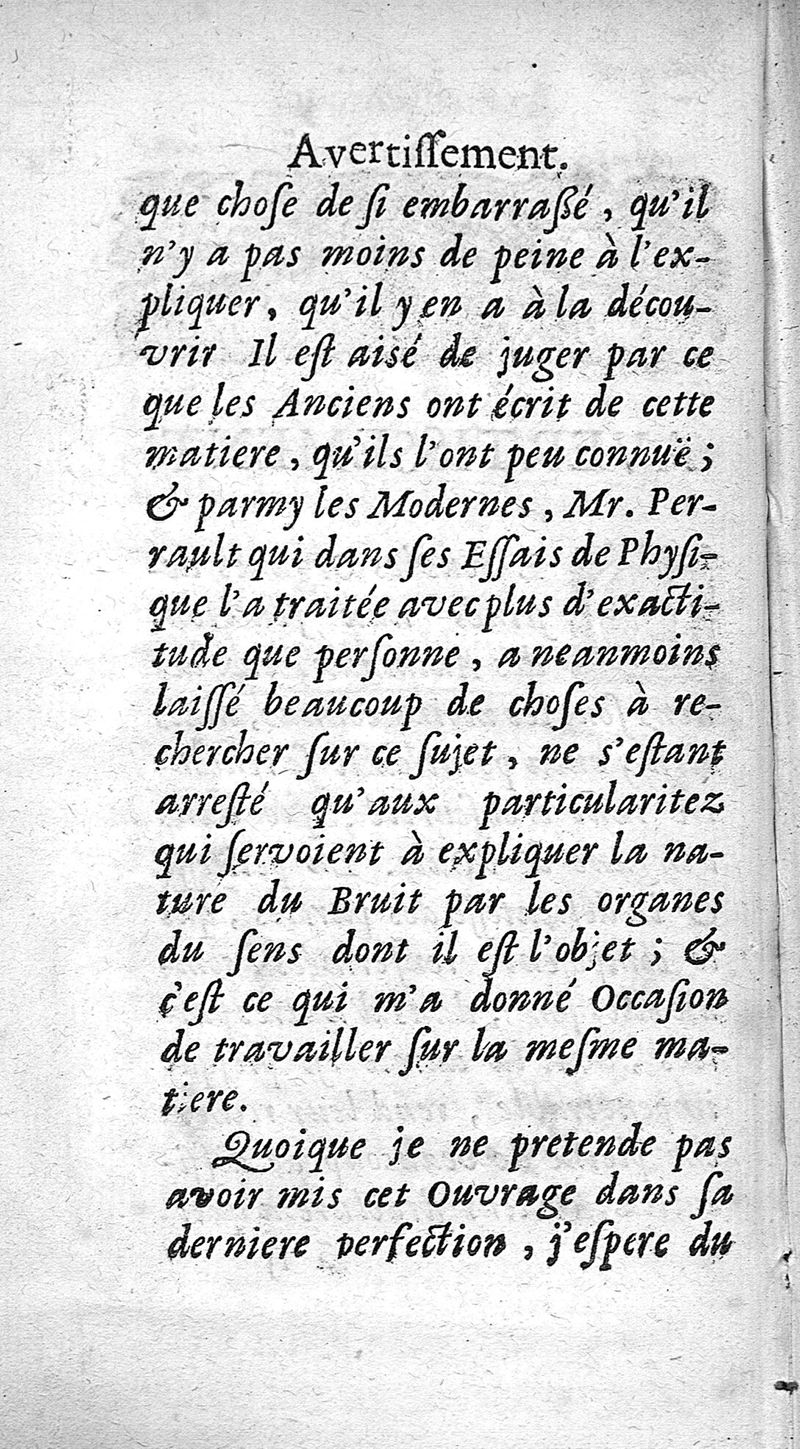 Avertiſſement.
que choſe de ſi embarraßé, qu'il
n'y a pas moins de peine à l'ex-
pliquer, qu'il y en a à la décou-
vrir Il eſt aisé de juger par ce
que les Anciens ont écrit de cette
matiere, qu'ils l'ont peu connuë ;
& parmy les Modernes, Mr. Per-
rault qui dans ſes Eſſais de Phyſi-
que l'a traitée avec plus d'exacti-
tude que perſonne, a neanmoins
laiſſé beaucoup de choſes à re-
chercher ſur ce ſujet, ne s'eſtant
arreſté qu'aux particularitez
qui ſervoient à expliquer la na-
ture du Bruit par les organes
du ſens dont il eſt l'objet ; &
c'eſt ce qui m'a donné Occaſion
de travailler ſur la meſme ma-
tiere.
Quoique je ne pretende pas
avoir mis cet Ouvrage dans ſa
derniere perfection, j'eſpere du